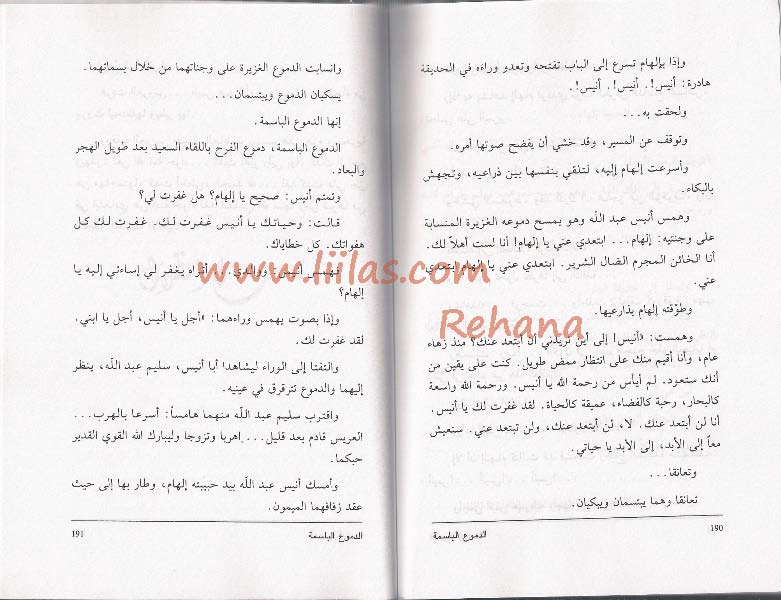 وإذا بإلهام تسرع إلى الباب تفتحه وتعدو وراءه في الحديقة
هادرة: أنيس!. أنيس!. أنيس!.
ولحقت به...
وتوقف عن المسير، وقد خشي أن يفضح صوتها أمره.
وأسرعت إلهام إليه، لتلقي بنفسها بين ذراعيه، وتجهش
بالبكاء.
وهمس أنيس عبد الله وهو يمسح دموعه الغزيرة المنسابة
على وجنتيه: إلهام... ابتعدي عني يا إلهام! أنا لست أهلاً لك.
أنا الخائن المجرم الضال الشرير. ابتعدي عني يا إلهام ابتعدي
عني.
وطوّقته إلهام بذارعيها.
وهمست: «أنيس! إلى أين تريدني أن أبتعد عنك؟ منذ زهاء
عام، وأنا أقيم منك على انتظار ممض طويل. كنت على يقين من
أنك ستعود. لم أيأس من رحمة الله يا أنيس. ورحمة الله واسعة
كالبحار، رحبة كالفضاء، عميقة كالحياة. لقد غفرت لك يا أنيس.
أنا لن أبتعد عنك. لا، لن أبتعد عنك، ولن تبتعد عني. سنعيش
معاً إلى الأبد، إلى الأبد يا حياتي.
وتعانقا...
تعانقا وهما يبتسمان ويبكيان.
الدموع الباسمة
190
وانسابت الدموع الغزيرة على وجناتهما من خلال بسماتهما.
يسكبان الدموع ويبتسمان...
إنها الدموع الباسمة.
الدموع الباسمة، دموع الفرح باللقاء السعيد بعد طويل الهجر
والبعاد.
وتمتم أنيس: صحيح يا إلهام؟ هل غفرت لي؟
قالت: وحياتك يا أنيس غفرت لك. غفرت لك كل
هفواتك. كل خطاياك.
فهمس أنيس: ووالدي.. أتراه يغفر لي إساءتي إليه يا
إلهام؟
وإذا بصوت يهمس وراءهما: «أجل يا أنيس، أجل يا ابني.
لقد غفرت لك.
والتفتا إلى الوراء ليشاهدا أبا أنيس، سليم عبد الله، ينظر
إليهما والدموع تترقرق في عينيه.
واقترب سليم عبد الله منهما هامساً: أسرعا بالهرب...
العريس قادم بعد قليل... إهربا وتزوجا وليبارك الله القوي القدير
حبكما.
وأمسك أنيس عبد الله بيد حبيبته إلهام، وطار بها إلى حيث
عقد زفافهما الميمون.
الدموع الباسمة
191
www.liilas.com
Rehana